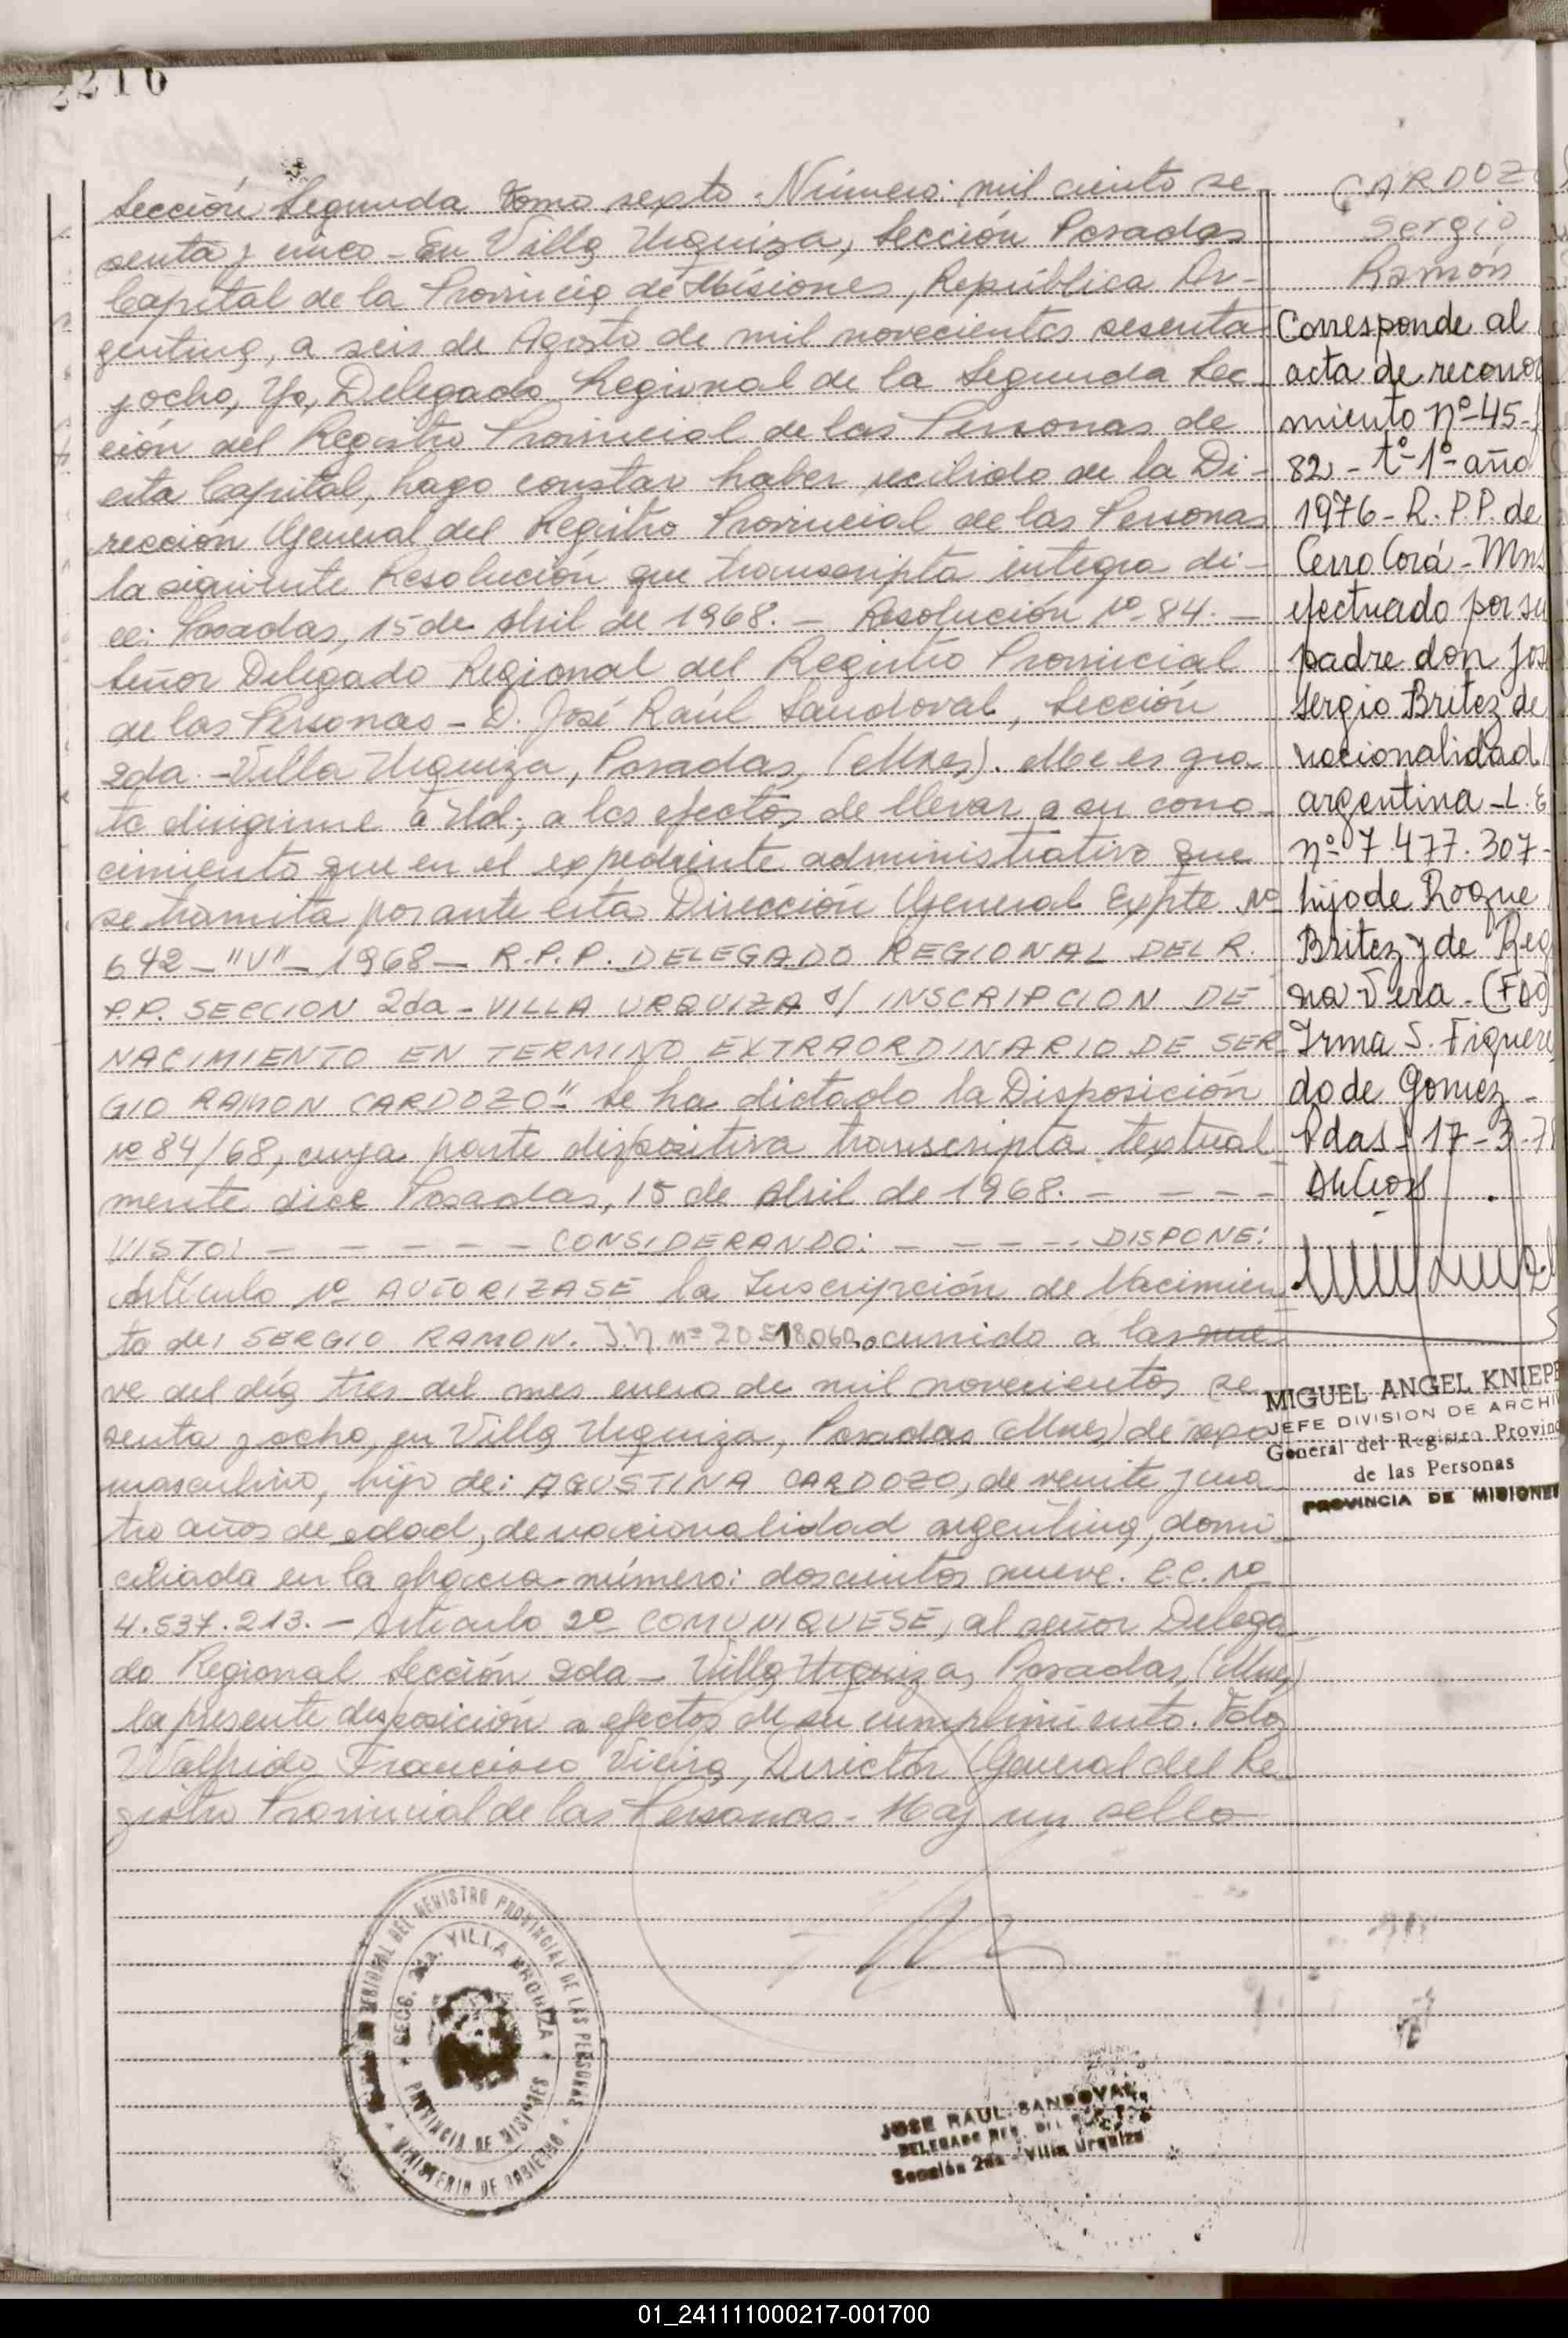 2216
Sección Segunda tomo sexto. Número: mil ciento se
senta y cinco - En Villa Urquiza, Sección Posadas
Capital de la Provincia de Misiones, República Ar-
gentina, a seis de Agosto de mil novecientos sesenta
y ocho, Yo, Delegado Regional de la Segunda Sec
ción del Registro Provincial de las Personas de
esta Capital, hago constar haber recibido de la Di-
rección General del Registro Provincial de las Personas
la siguiente Resolución que transcripta integra di-
ce: Posadas, 15 de Abril de 1968. - Resolución Nº 84. -
Señor Delegado Regional del Registro Provincial
de las Personas - D. José Raúl Sandoval, Sección
2da. - Villa Urquiza, Posadas, (Mnes). Me es gra
to dirigirme a Ud; a los efectos de llevar a su cono-
cimiento que en el expediente administrativo que
se tramita por ante esta Dirección General Expte Nº
642 - "V" - 1968 - R.P.P. DELEGADO REGIONAL DEL R.
P.P. SECCION 2da - VILLA URQUIZA s/ INSCRIPCION DE
NACIMIENTO EN TERMINO EXTRAORDINARIO DE SER
GIO RAMON CARDOZO" se ha dictado la Disposición
Nº 84/68, cuya parte dispositiva transcripta textual
mente dice Posadas, 15 de Abril de 1968. - - - -
VISTO: - - - - - - CONSIDERANDO: - - - - - DISPONE:
Artículo 1º AUTORIZASE la Inscripción de Nacimien
to de: SERGIO RAMON. ocurrido a las nue
ve del día tres del mes enero de mil novecientos se
senta y ocho, en Villa Urquiza, Posadas (Mnes) de sexo
masculino, hijo de: AGUSTINA CARDOZO, de veinte y cua
tro años de edad, de nacionalidad argentina, domi
ciliada en la chacra número: doscientos nueve. L.C. Nº
4.537.213. - Artículo 2º COMUNIQUESE, al señor Delega
do Regional Sección 2da - Villa Urquiza, Posadas, (Mnes)
la presente disposición a efectos de su cumplimiento. Fdo.
Walfrido Francisco Vieira, Director General del Re
gistro Provincial de las Personas - Hay un sello
CARDOZO
Sergio
Ramón
Corresponde al
acta de reconoc
miento nº 45-
82 - tº 1º año
1976 - R.P.P. de
Cerro Corá - Mns
efectuado por su
padre don Jos
Sergio Britez de
nacionalidad
argentina - L.E
nº 7.477.307-
hijo de Roque
Britez y de Reg
na Vera - (FDO)
Irma S. Figuere
do de Gomez -
Pdas - 17-3-7
MIGUEL ANGEL KNIEPE
JEFE DIVISION DE ARCHI
General del Registro Provinc
de las Personas
PROVINCIA DE MISIONES
REGIONAL DEL REGISTRO PROVINCIAL DE LAS PERSONAS
SECC. 2da. VILLA URQUIZA
PROVINCIA DE MISIONES
MINISTERIO DE GOBIERNO
JOSE RAUL SANDOVAL
DELEGADO REG. DEL R.P.P.
Sección 2da - Villa Urquiza
01_241111000217-001700